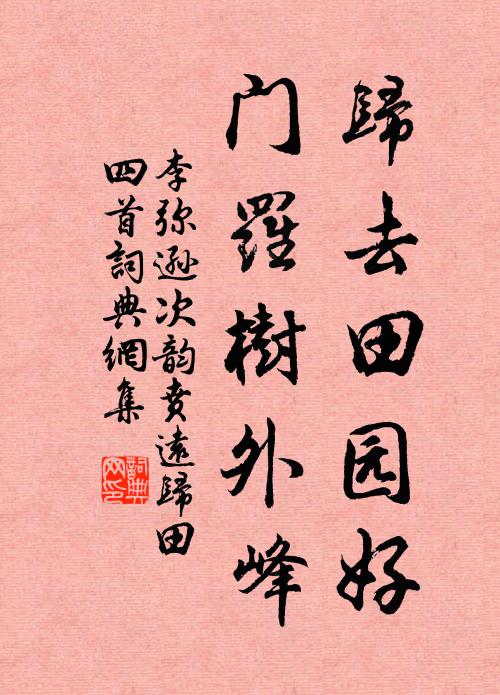 歸去田园好
门羅樹外峰
李弥遜次韵賁遠歸田
四首詞典網集
詞典网印